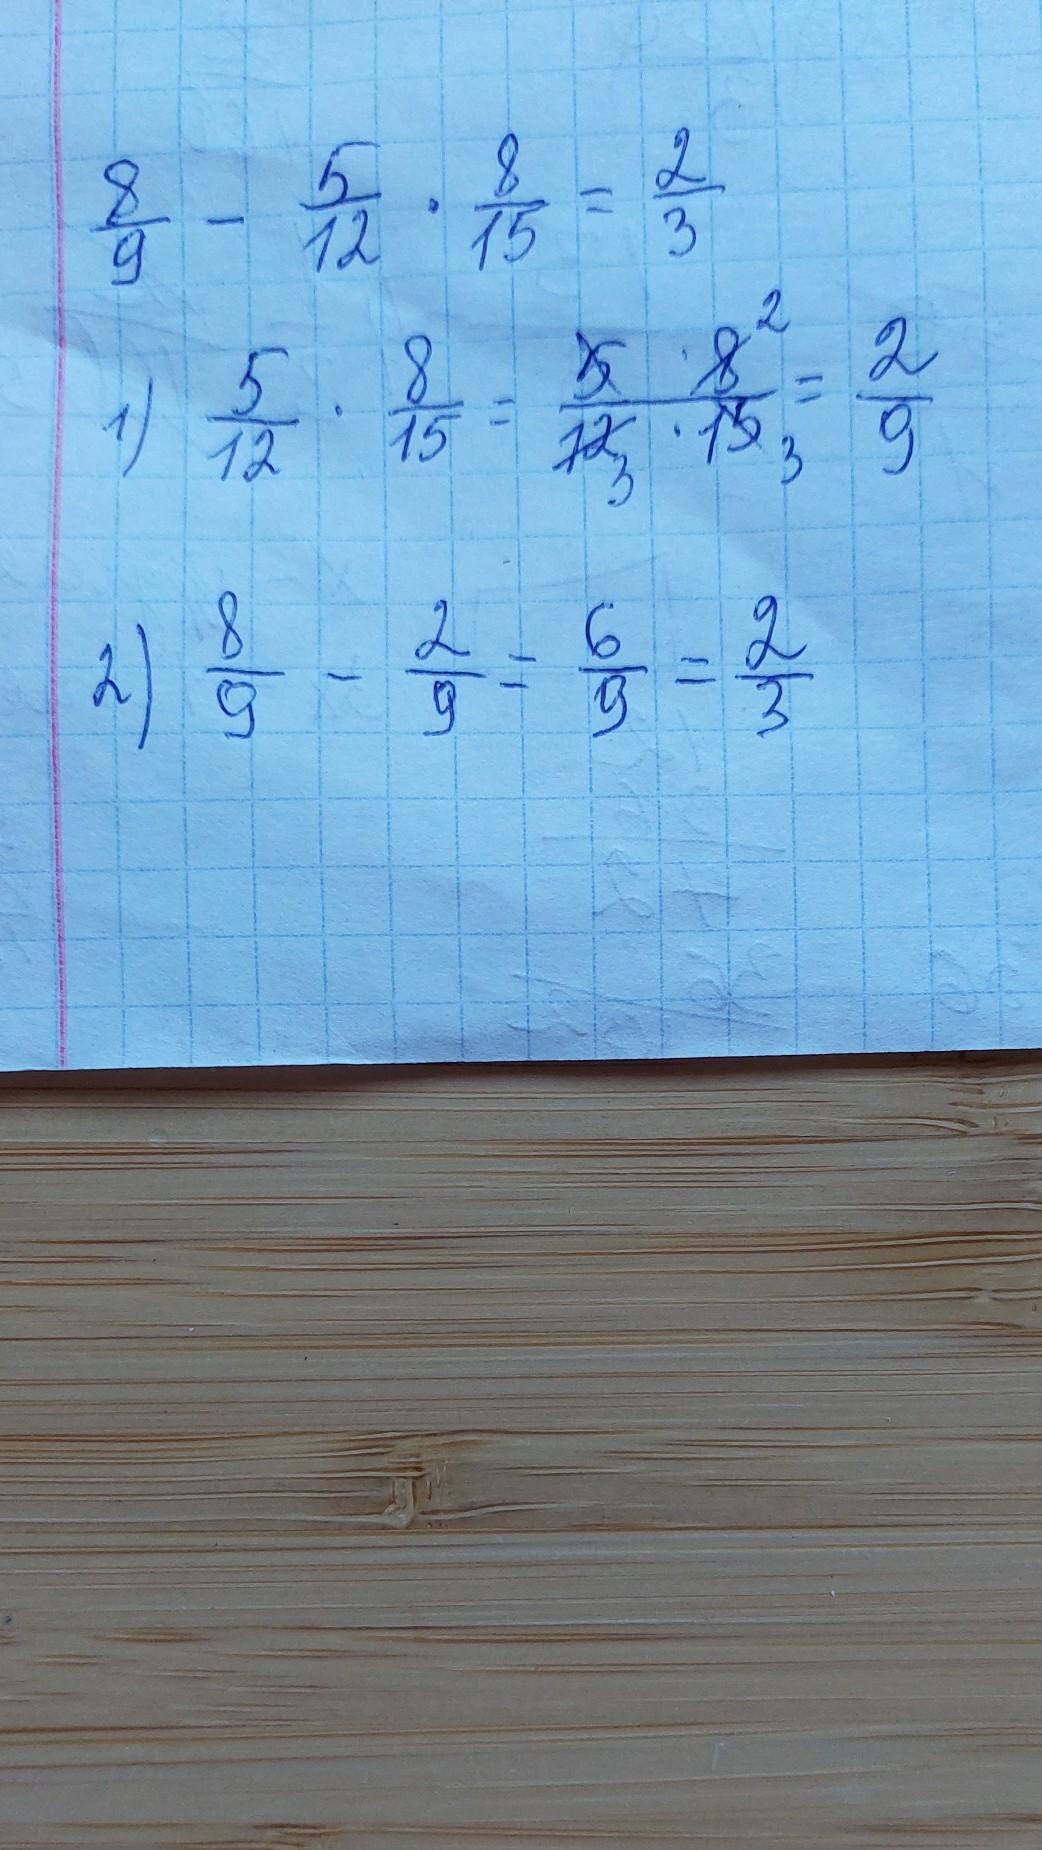 8/9 - 5/12 · 8/15 = 2/3
1) 5/12 · 8/15 = 5 · 8 2 / 12 3 · 15 3 = 2/9
2) 8/9 - 2/9 = 6/9 = 2/3